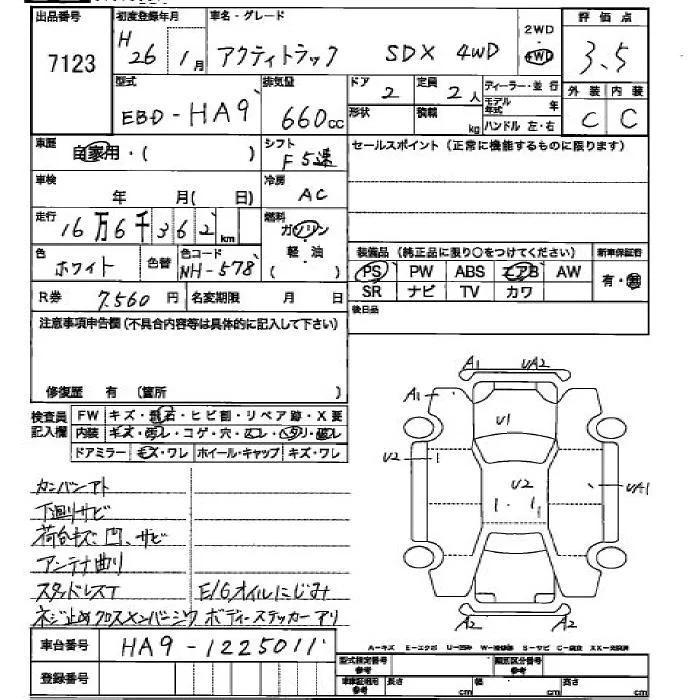 出品番号 初度登録年月 車名・グレード 2WD 評価点
7123 H 26 1月 アクティトラック SDX 4WD 4WD 3.5
型式 排気量 ドア 定員 ディーラー・並行 外装 内装
EBD-HA9 660cc 2 2人 モデル年式 年 C C
形状 積載 kg ハンドル 左・右
車歴 自家用・( ) シフト F5速 セールスポイント (正常に機能するものに限ります)
車検 年 月( 日) 冷房 AC
走行 16万6千362km 燃料 ガソリン
軽油
( )
色 ホワイト 色替 色コード NH-578 装備品 (純正品に限り○をつけてください) 新車保証書
PS PW ABS エアB AW 有・無
SR ナビ TV カワ
R券 7,560円 名変期限 月 日 後日品
注意事項申告欄(不具合内容等は具体的に記入して下さい)
修復歴 有 (箇所 )
検査員記入欄 FW キズ・飛石・ヒビ割・リペア跡・X要
内装 キズ・汚レ・コゲ・穴・ハガレ・ヘタリ・破レ
ドアミラー キズ・ワレ ホイール・キャップ キズ・ワレ
A1 UA2
A1
U1
U2 U2 UA1
A2 A2
カンバンアト
下廻りサビ
荷台キズ、凹、サビ
アンテナ曲り
スタッドレスT E/Gオイルにじみ
ネジ止めクロスメンバーシワ ボディーステッカーアリ
車台番号 HA9-1225011
登録番号
A-キズ E-エクボ U-凹み W-補修跡 S-サビ C-腐食 XX-交換済
型式指定番号 参考 類別区分番号 参考
車庫証明用 参考 長さ cm 幅 cm 高さ cm